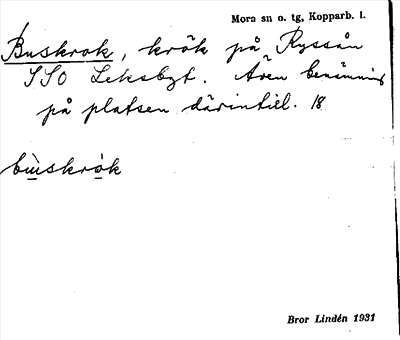 Mora sn o. tg, Kopparb. l.
Buskrok, krök på Ryssån
SSO Leksbygt. Även benämning
på platsen därintill. 18
bùskròk
Bror Lindén 1931